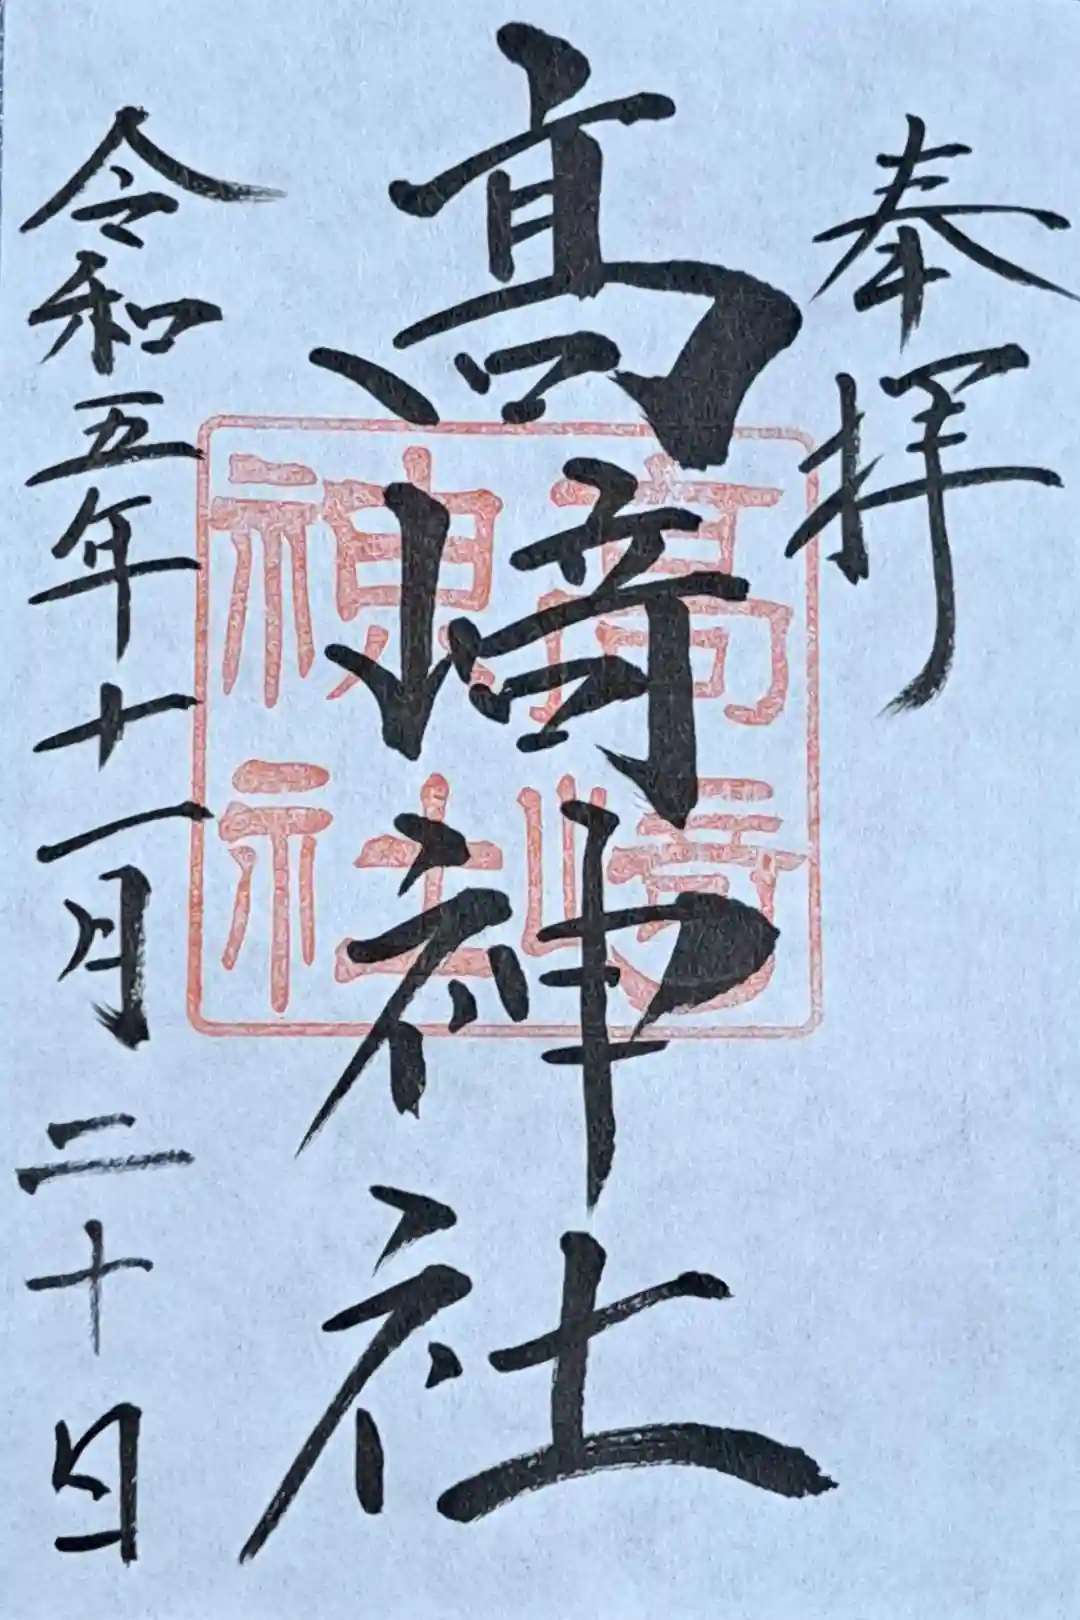 奉拝
髙﨑神社
高﨑
神社
令和五年十一月二十日